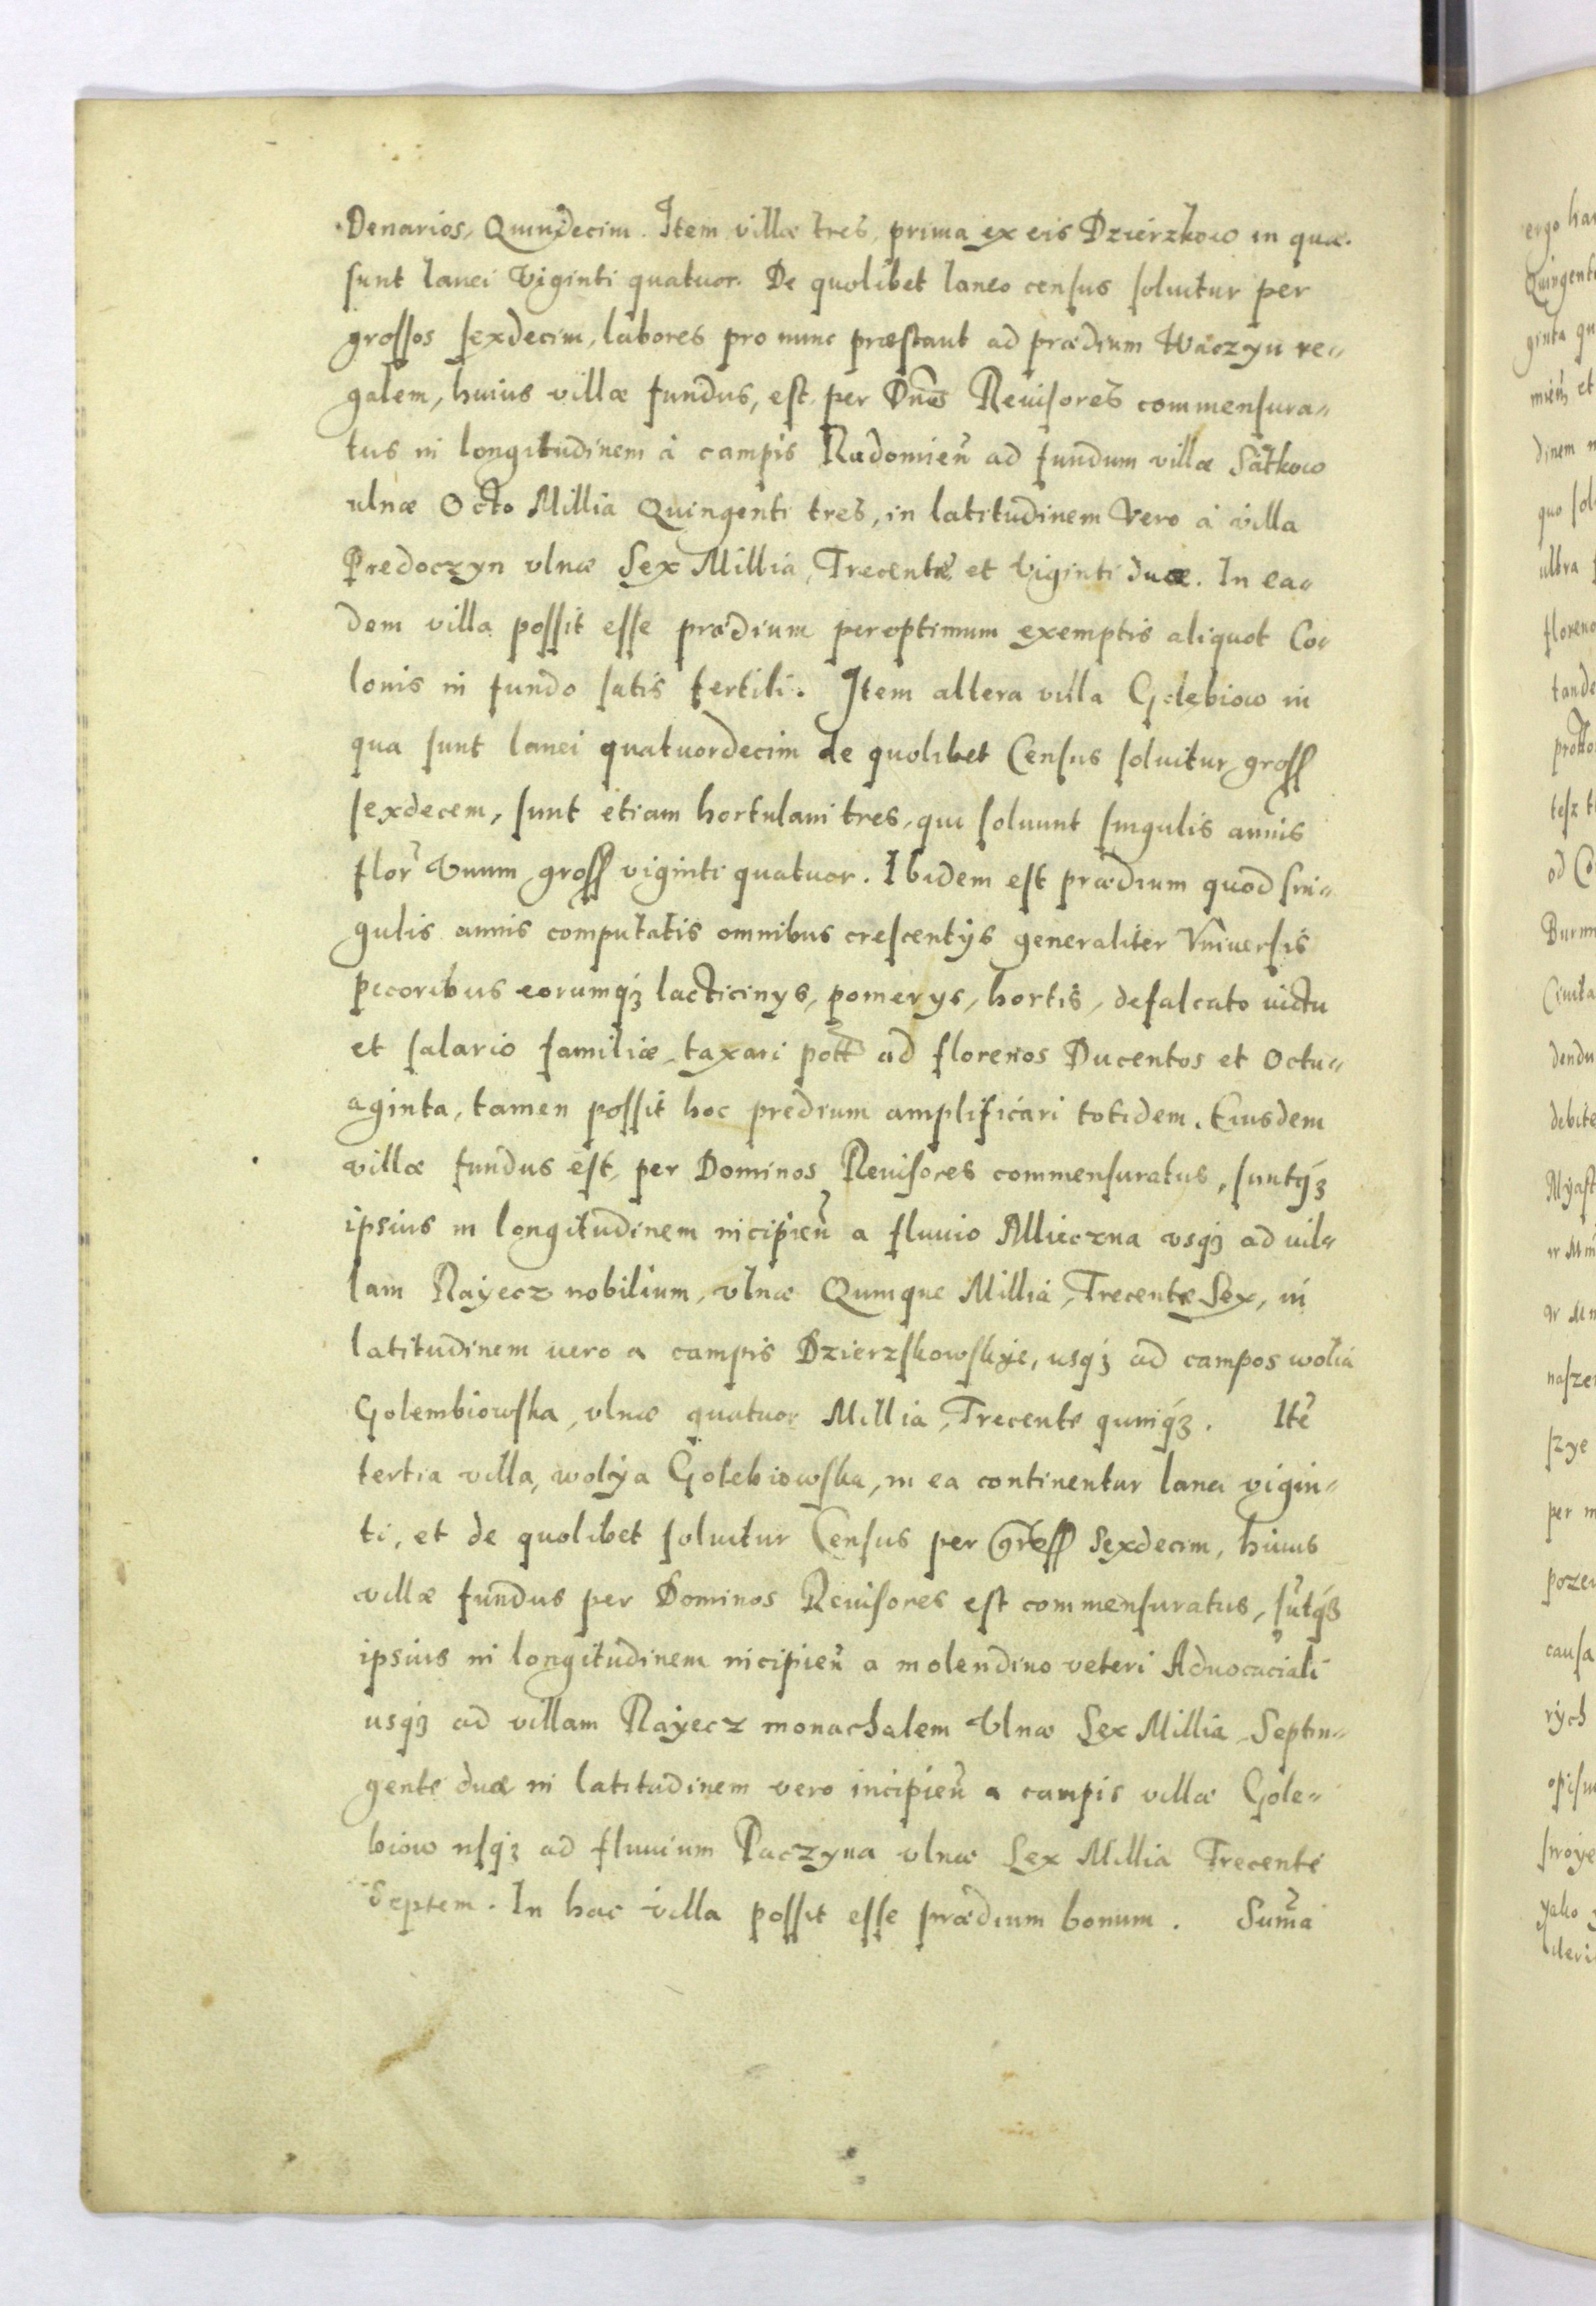 Denarios, Quindecim. Item villæ tres, prima ex eis Dzierzkow in qua
sunt lanei Viginti quatuor. De quolibet laneo census soluitur per
grossos sexdecim, labores pro nunc præstant ad prædium Waczyn re„
galem, huius villæ fundus, est per Dn̄os Reuisores commensura„
tus in longitudinem à campis Radomien̄ ad fundum villæ Sátkow
ulnæ Octo Millia Quingenti tres, in latitudinem Vero à villa
Predoczyn vlnæ Sex Millia, Trecentæ et Viginti duæ. In ea„
dem villa possit esse prædium peroptimum exemptis aliquot Co„
lonis in fundo satis fertili. Item altera villa Golębiow in
qua sunt lanei quatuordecim de quolibet Census soluitur gross
sexdecem, sunt etiam hortulani tres, qui soluunt singulis annis
flor̄ Vnum gross viginti quatuor. Ibidem est prædium quod sin„
gulis annis computatis omnibus crescentÿs generaliter Vniuersis
pecoribus eorumqꝫ lacticinÿs, pomerÿs, hortis, defalcato victu
et salario familiæ, taxari pott ad florenos Ducentos et Octu„
aginta, tamen possit hoc predium amplificari totidem. Eiusdem
villæ fundus est per Dominos Reuisores commensuratus, suntqꝫ
ipsius in longitudinem incipien̄ a fluuio Mlieczna vsqꝫ ad vil„
lam Rayecz nobilium, vlnæ Quinque Millia, Trecentæ Sex, in
latitudinem uero a campis Dzierzskowskye, usqꝫ ad campos wolia
Golembiowska, vlnæ quatuor Millia, Trecentę quinqꝫ. Itē
tertia villa, wolÿa Golebiowska, in ea continentur lanei vigin„
ti, et de quolibet soluitur Census per gross Sexdecim, huius
villæ fundus per Dominos Reuisores est commensuratus, sūtqꝫ
ipsius in longitudinem incipien̄ a molendino veteri Aduocaciali
usqꝫ ad villam Rayecz monachalem Vlnæ Sex Millia Septin„
gentę duæ in latitudinem vero incipien̄ a campis villæ Gole„
biow usqꝫ ad fluuium Paczyna vlnæ Sex Millia Trecentę
Septem. In hac villa possit esse prædium bonum. Sum̄a